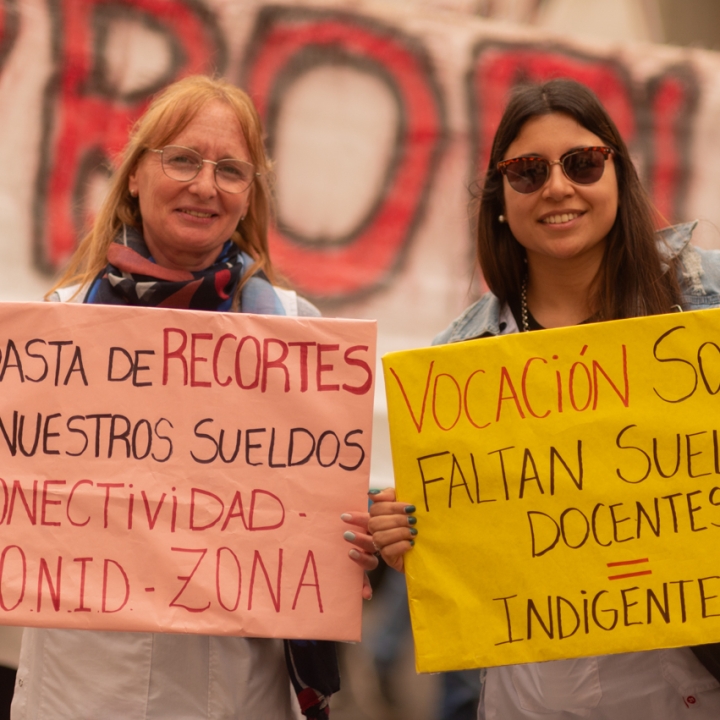 BASTA DE RECORTES
NUESTROS SUELDOS
ONECTIViDAD -
O.N.I.D. - ZONA
VOCACiÓN SO
FALTAN SUEL
DOCENTES
=
INDiGENTE